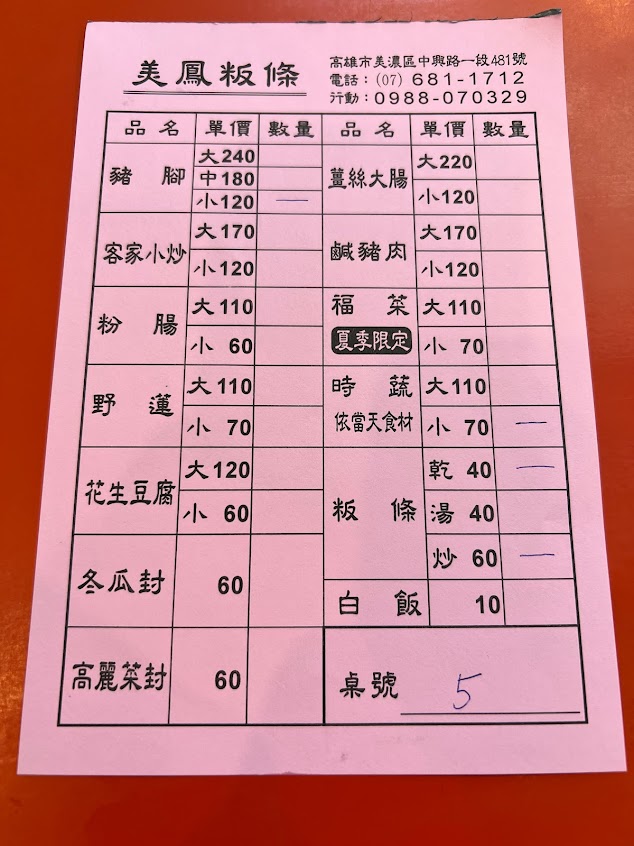 美鳳粄條
高雄市美濃區中興路一段481號
電話：(07) 681-1712
行動：0988-070329
品名 單價 數量 品名 單價 數量
豬腳 大240
中180
小120 一
薑絲大腸 大220
小120
客家小炒 大170
小120
鹹豬肉 大170
小120
粉腸 大110
小 60
福菜 大110
夏季限定 小 70
野蓮 大110
小 70
時蔬 大110
依當天食材 小 70 一
花生豆腐 大120
小 60
粄條 乾 40 一
湯 40
炒 60 一
冬瓜封 60
白飯 10
高麗菜封 60
桌號 5